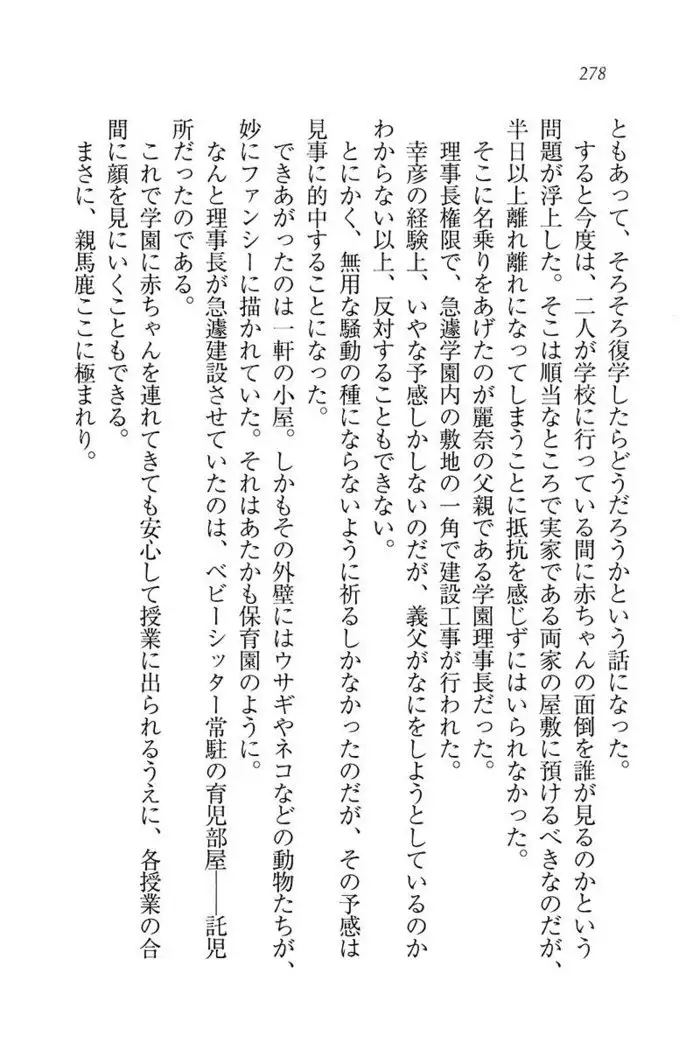 278
ともあって、そろそろ復学したらどうだろうかという話になった。
すると今度は、二人が学校に行っている間に赤ちゃんの面倒を誰が見るのかという
問題が浮上した。そこは順当なところで実家である両家の屋敷に預けるべきなのだが、
半日以上離れ離れになってしまうことに抵抗を感じずにはいられなかった。
そこに名乗りをあげたのが麗奈の父親である学園理事長だった。
理事長権限で、急遽学園内の敷地の一角で建設工事が行われた。
幸彦の経験上、いやな予感しかしないのだが、義父がなにをしようとしているのか
わからない以上、反対することもできない。
とにかく、無用な騒動の種にならないように祈るしかなかったのだが、その予感は
見事に的中することになった。
できあがったのは一軒の小屋。しかもその外壁にはウサギやネコなどの動物たちが、
妙にファンシーに描かれていた。それはあたかも保育園のように。
なんと理事長が急遽建設させていたのは、ベビーシッター常駐の育児部屋――託児
所だったのである。
これで学園に赤ちゃんを連れてきても安心して授業に出られるうえに、各授業の合
間に顔を見にいくこともできる。
まさに、親馬鹿ここに極まれり。